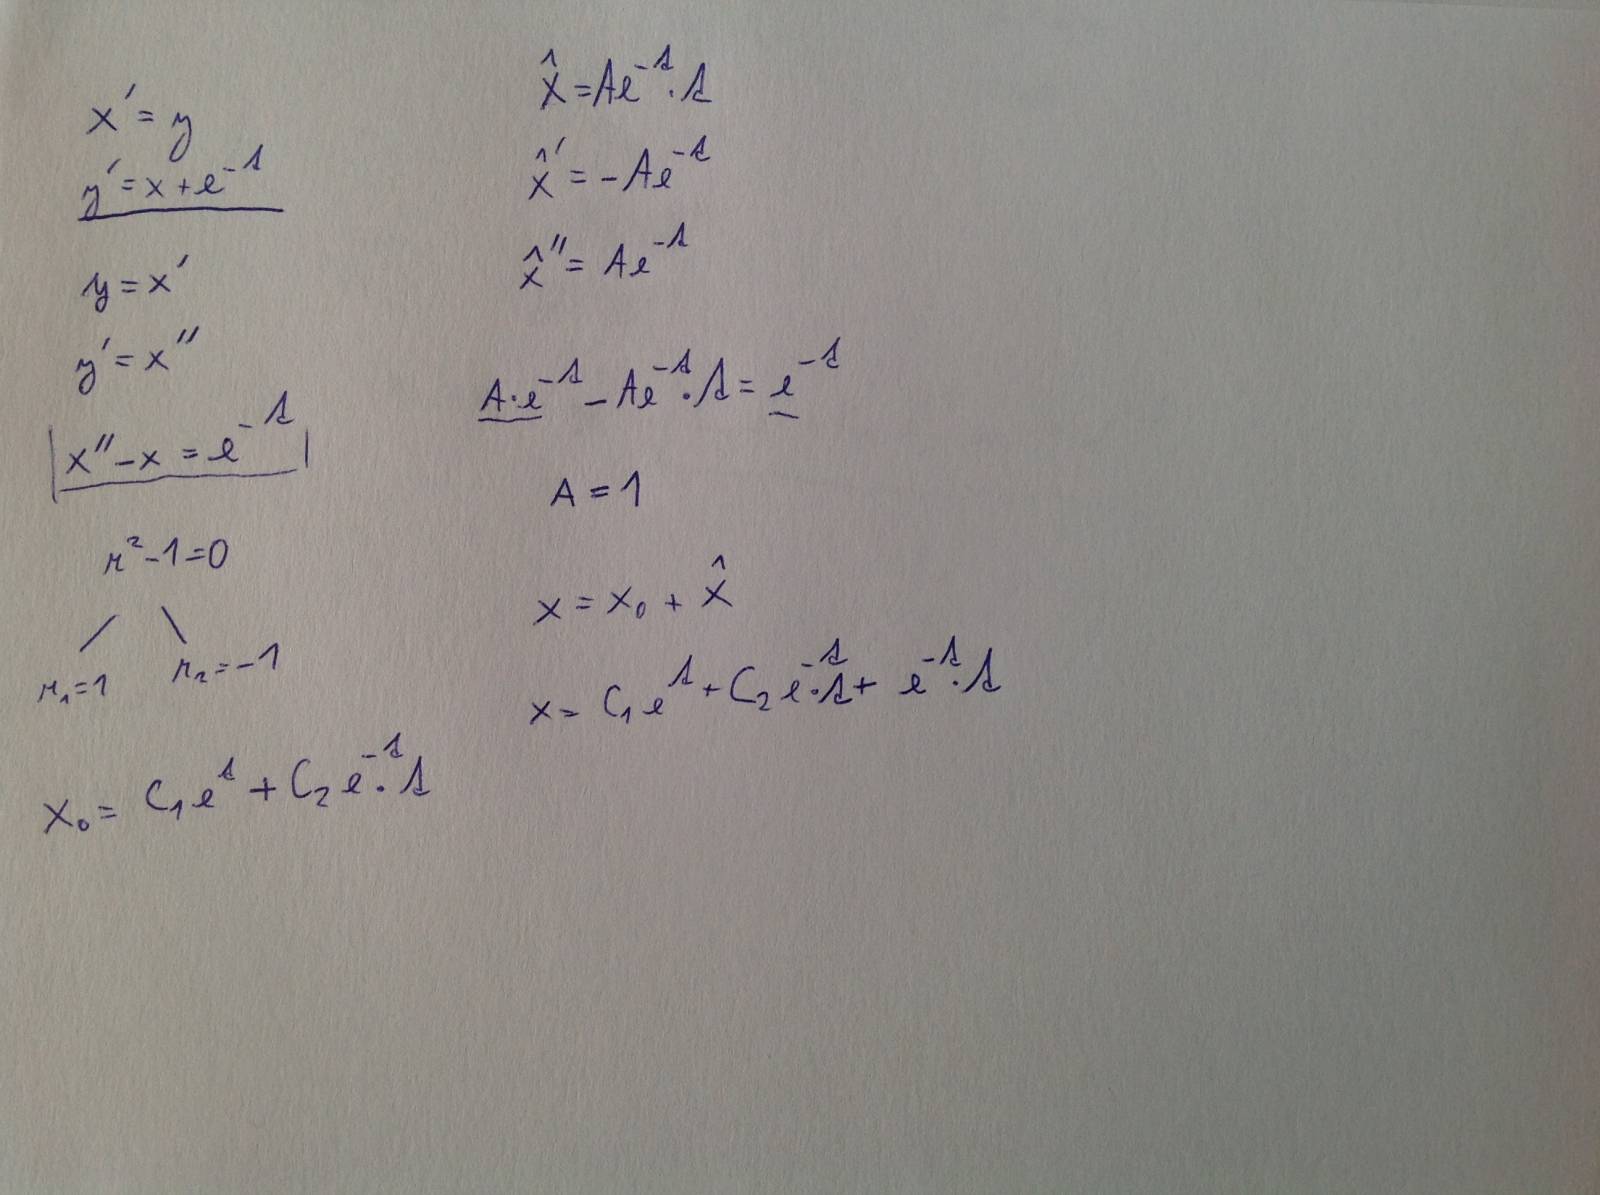 x' = y
y' = x + e^{-t}
y = x'
y' = x''
x'' - x = e^{-t}
r² - 1 = 0
r₁ = 1 r₂ = -1
x₀ = C₁e^{t} + C₂e^{-t}·t
x̂ = Ae^{-t}·t
x̂' = -Ae^{-t}
x̂'' = Ae^{-t}
A·e^{-t} - Ae^{-t}·t = e^{-t}
A = 1
x = x₀ + x̂
x = C₁e^{t} + C₂e^{-t}·t + e^{-t}·t